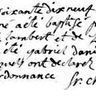 soixante dix neuf
ne acte baptisé p
lambert et de
été gabriel dani
quels ont declaré
ordonnance fr. ch